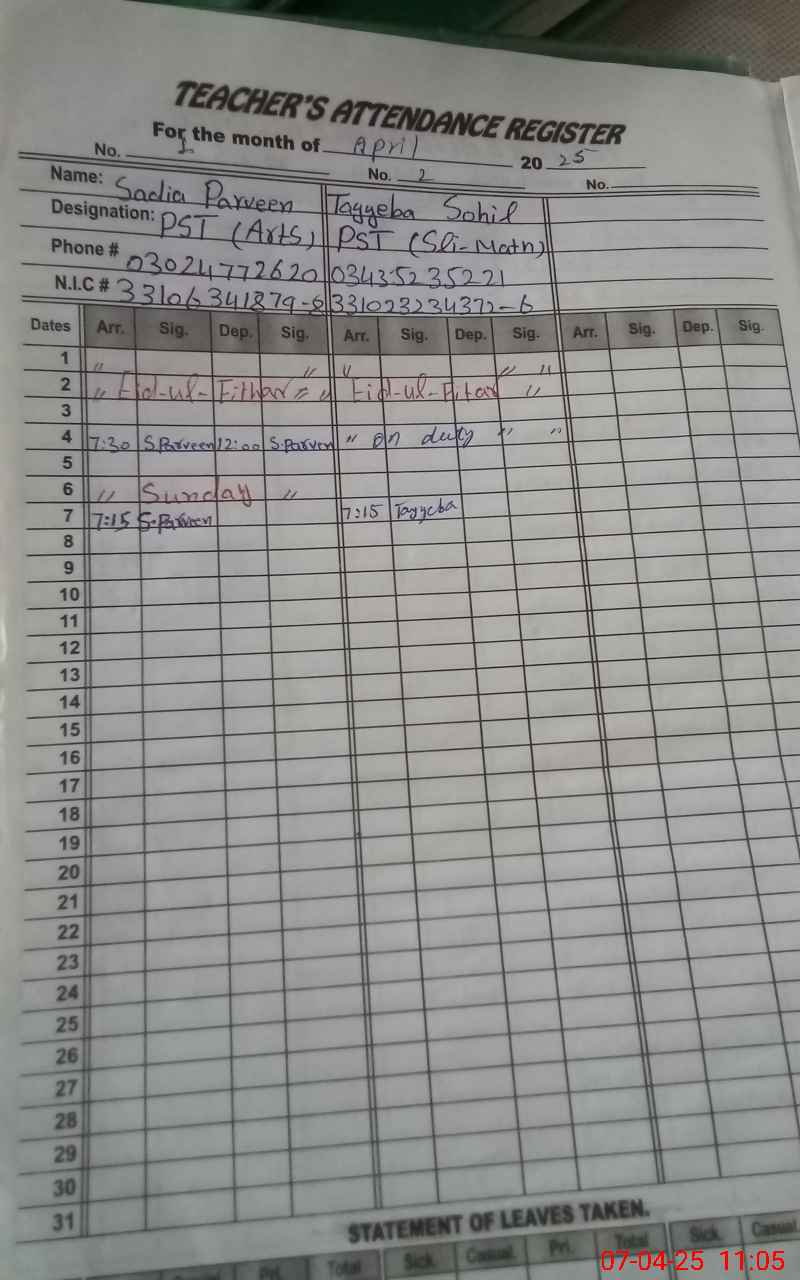 TEACHER'S ATTENDANCE REGISTER
For the month of April 20 25
No. 1 No. 2 No.
Name: Sadia Parveen Tayyeba Sohil
Designation: PST (Arts) PST (Sci-Math)
Phone # 03024772620 03435235221
N.I.C # 33106341879-8 331023234372-6
Dates Arr. Sig. Dep. Sig. Arr. Sig. Dep. Sig. Arr. Sig. Dep. Sig.
1 " " " " "
2 " Eid-ul-Fithar = " Eid-ul-Fitar "
3
4 7:30 S.Parveen 12:00 S.Parveen " on duty " "
5
6 " Sunday "
7 7:15 S.Parveen 7:15 Tayyeba
8
9
10
11
12
13
14
15
16
17
18
19
20
21
22
23
24
25
26
27
28
29
30
31
STATEMENT OF LEAVES TAKEN.
Casual Pri. Total Sick Casual Pri. Total Sick Casual
07-04-25 11:05